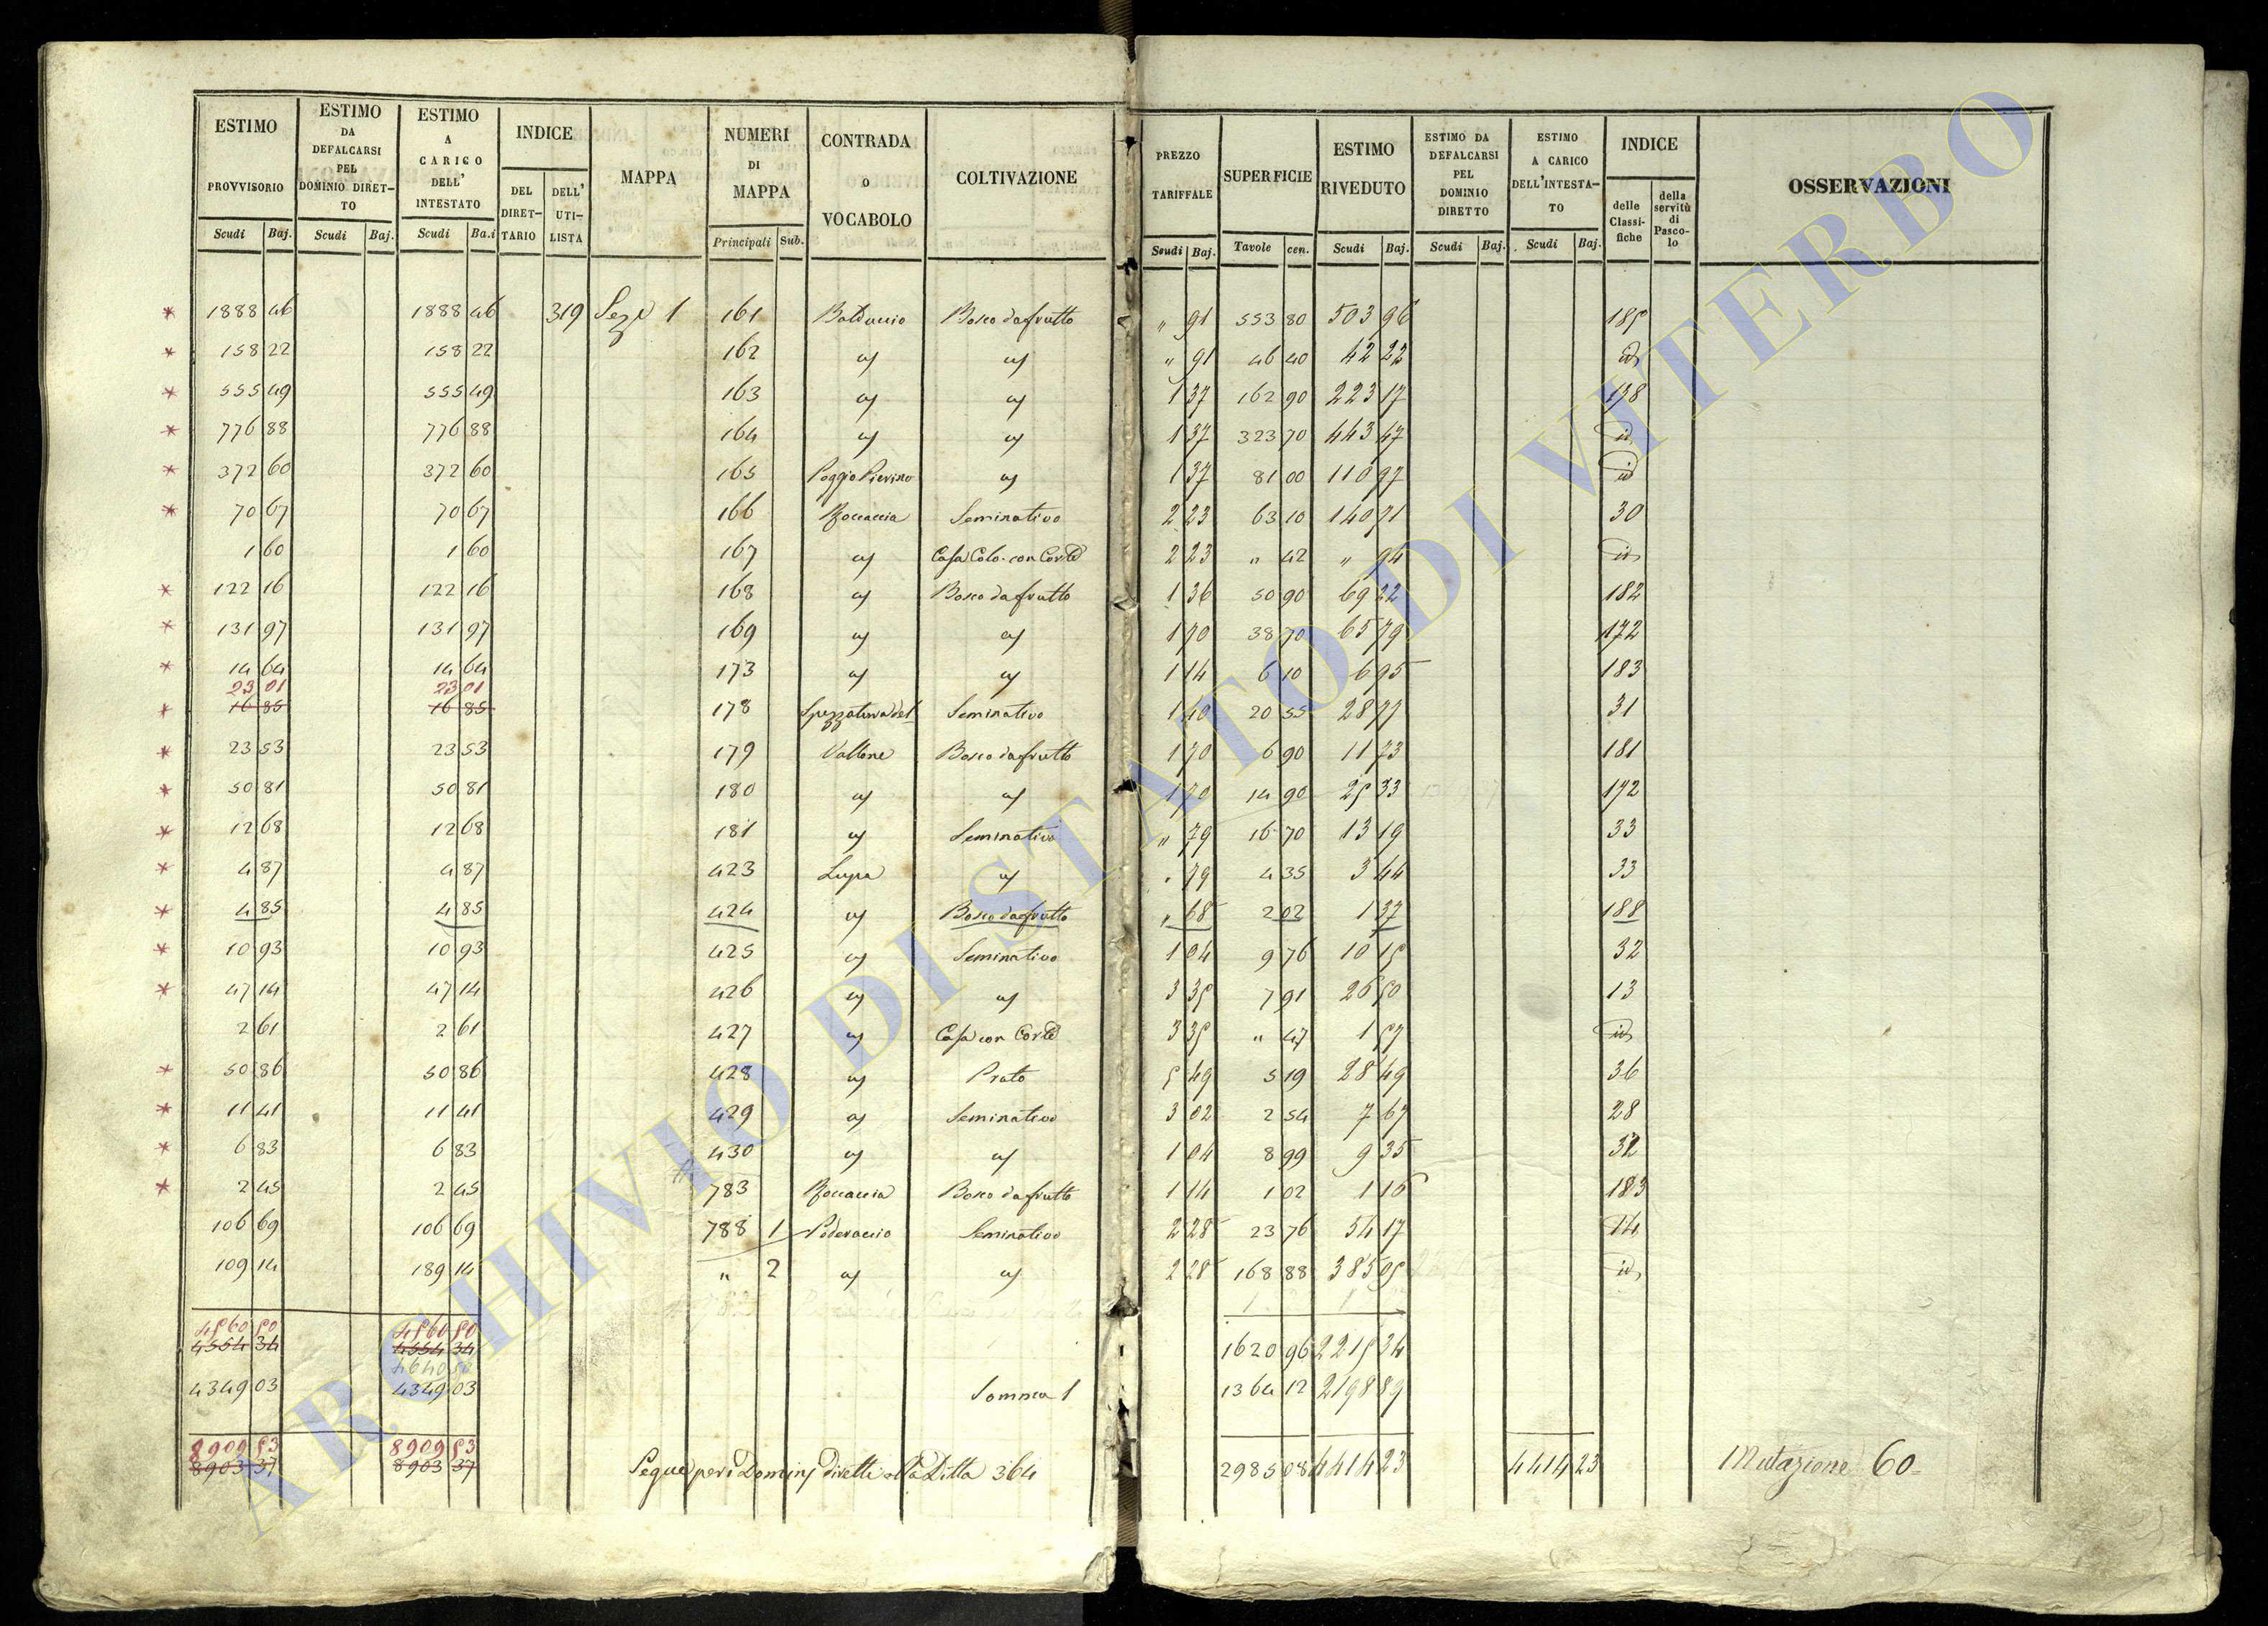 ESTIMO PROVVISORIO Scudi Baj. | ESTIMO DA DEFALCARSI PEL DOMINIO DIRETTO Scudi Baj. | ESTIMO A CARICO DELL' INTESTATO Scudi Ba.i | INDICE DEL DIRETTARIO DELL' UTILISTA | MAPPA | NUMERI DI MAPPA Principali Sub. | CONTRADA O VOCABOLO | COLTIVAZIONE | PREZZO TARIFFALE Scudi Baj. | SUPERFICIE Tavole cen. | ESTIMO RIVEDUTO Scudi Baj. | ESTIMO DA DEFALCARSI PEL DOMINIO DIRETTO Scudi Baj. | ESTIMO A CARICO DELL'INTESTATO Scudi Baj. | INDICE delle Classifiche della servitù di Pascolo | OSSERVAZIONI
* 1888 46 1888 46 319 Sez.e 1 161 Balduccio Bosco da frutto " 91 553 80 503 96 185
* 158 22 158 22 162 id id " 91 46 40 42 22 id
* 555 49 555 49 163 id id 1 37 162 90 223 17 178
* 776 88 776 88 164 id id 1 37 323 70 443 47 id
* 372 60 372 60 165 Poggio Pierino id 1 37 81 00 110 97 id
* 70 67 70 67 166 Roccaccia Seminativo 2 23 63 10 140 71 30
1 60 1 60 167 id Casa Colo. con Corte 2 23 " 42 " 94 id
* 122 16 122 16 168 id Bosco da frutto 1 36 50 90 69 22 182
* 131 97 131 97 169 id id 1 70 38 70 65 79 172
* 14 64 14 64 173 id id 1 14 6 10 6 95 183
23 01 23 01
* 16 85 16 85 178 Spezzatura del Seminativo 1 40 20 55 28 77 31
* 23 53 23 53 179 Vallone Bosco da frutto 1 70 6 90 11 73 181
* 50 81 50 81 180 id id 1 70 14 90 25 33 172
* 12 68 12 68 181 id Seminativo " 79 16 70 13 19 33
* 4 87 4 87 423 Lupa id " 79 4 35 3 44 33
* 4 85 4 85 424 id Bosco da frutto " 68 2 02 1 37 188
* 10 93 10 93 425 id Seminativo 1 04 9 76 10 15 32
* 47 14 47 14 426 id id 3 35 7 91 26 50 13
2 61 2 61 427 id Casa con Corte 3 35 " 47 1 57 id
* 50 86 50 86 428 id Prato 5 49 5 19 28 49 36
* 11 41 11 41 429 id Seminativo 3 02 2 54 7 67 28
* 6 83 6 83 430 id id 1 04 8 99 9 35 32
* 2 45 2 45 783 Roccaccia Bosco da frutto 1 14 1 02 1 16 183
106 69 106 69 788 1 Poderaccio Seminativo 2 28 23 76 54 17 14
109 14 189 14 " 2 id id 2 28 168 88 385 05 id
4560 50 4560 50
4554 34 4554 34 1620 96 2215 34
4640 50
4349 03 4349 03 Somma 1 1364 12 2198 89
8909 53 8909 53
8903 37 8903 37 Segue per i Dominj diretti alla Ditta 364 2985 08 4414 23 4414 23 Mutazione 60
ARCHIVIO DI STATO DI VITERBO